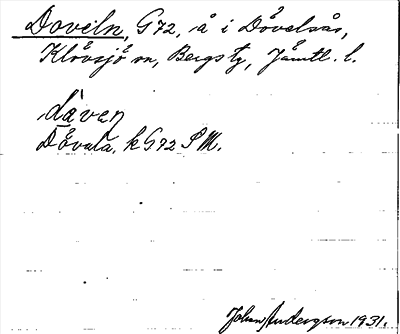 Doveln, G72, å i Dövelsås,
Klövsjö sn, Bergs tg, Jämtl. l.
dåven
Dåvala, k G72 SM.
Johan Andersson 1931.